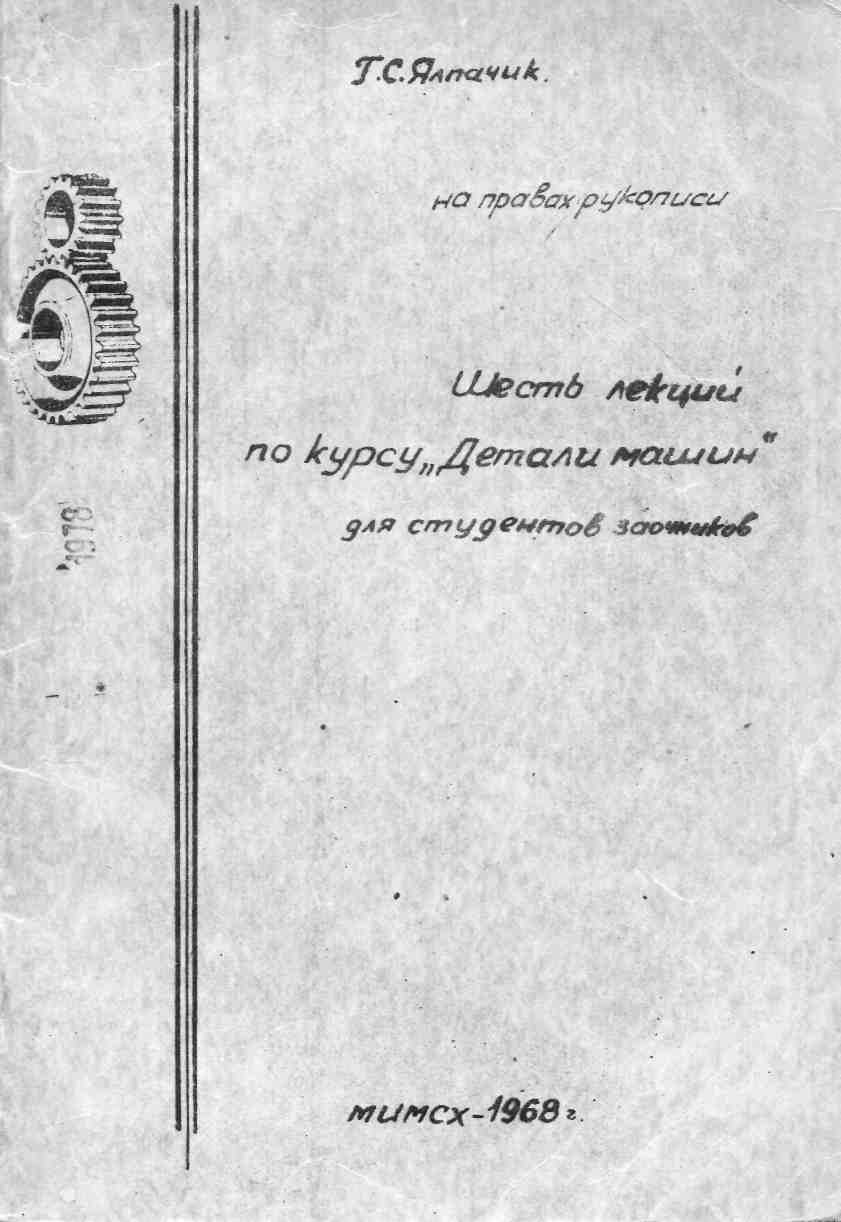 Г.С.Ялпачик.
на правах рукописи
Шесть лекций
по курсу „Детали машин“
для студентов заочников
1978
МИМСХ-1968г.